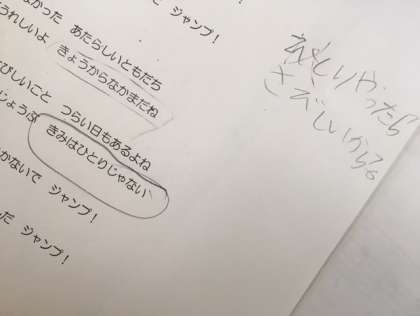 なかった あたらしいともだち
うれしいよ きょうからなかまだね
びしいこと つらい日もあるよね
じょうぶ きみはひとりじゃない
かないで ジャンプ！
だ ジャンプ！
で ジャンプ！
さびしいから。